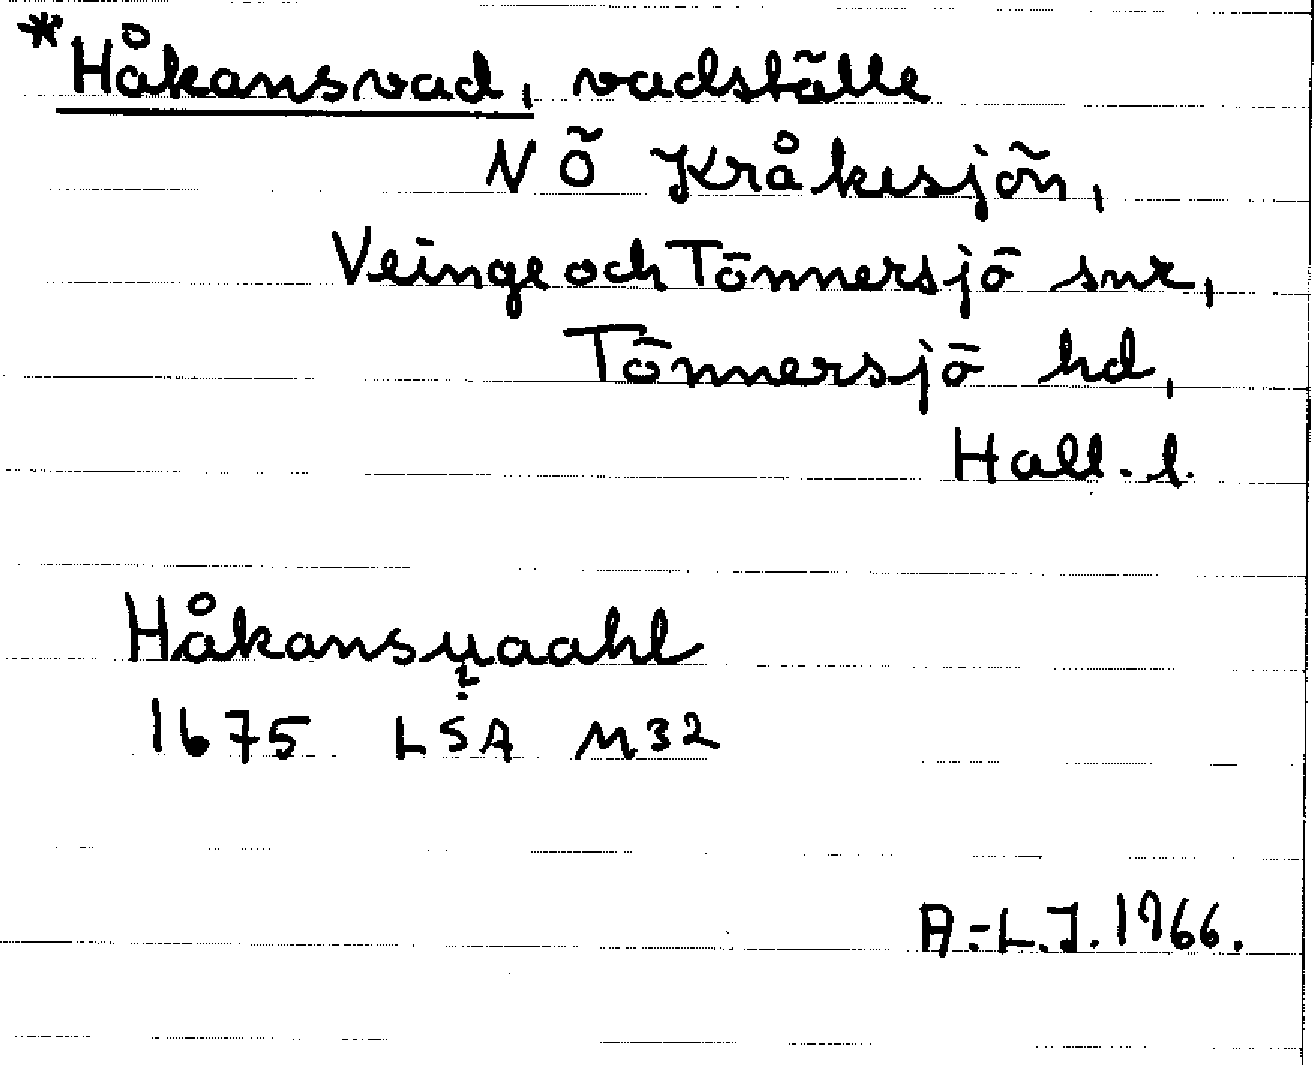 *Håkansvad, vadställe
NÖ Kråkesjön,
Veinge och Tönnersjö snr,
Tönnersjö hd,
Hall. l.
Håkansyaahl
?
1675 LSA M32
A.-L.J. 1966.